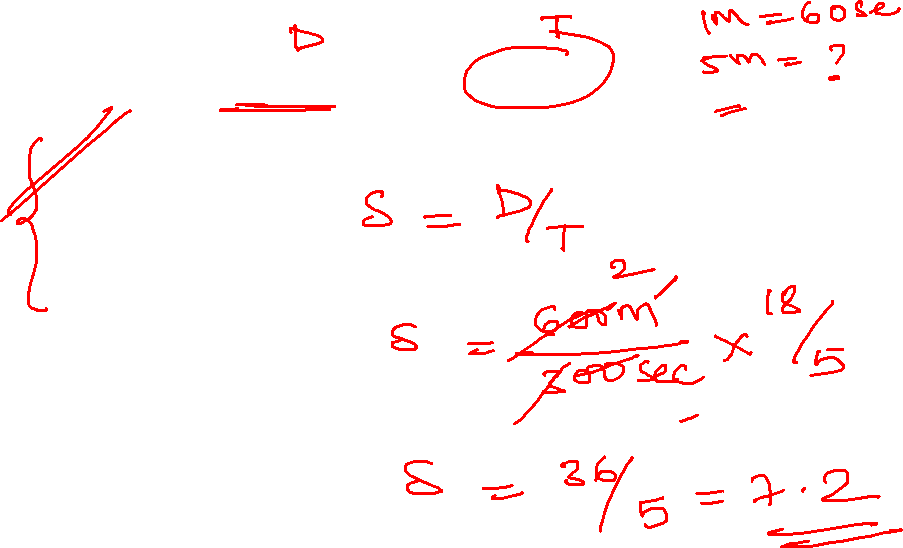 D T 1m = 60se
5m = ?
S = D/T
2
S = 600m/300sec × 18/5
S = 36/5 = 7.2